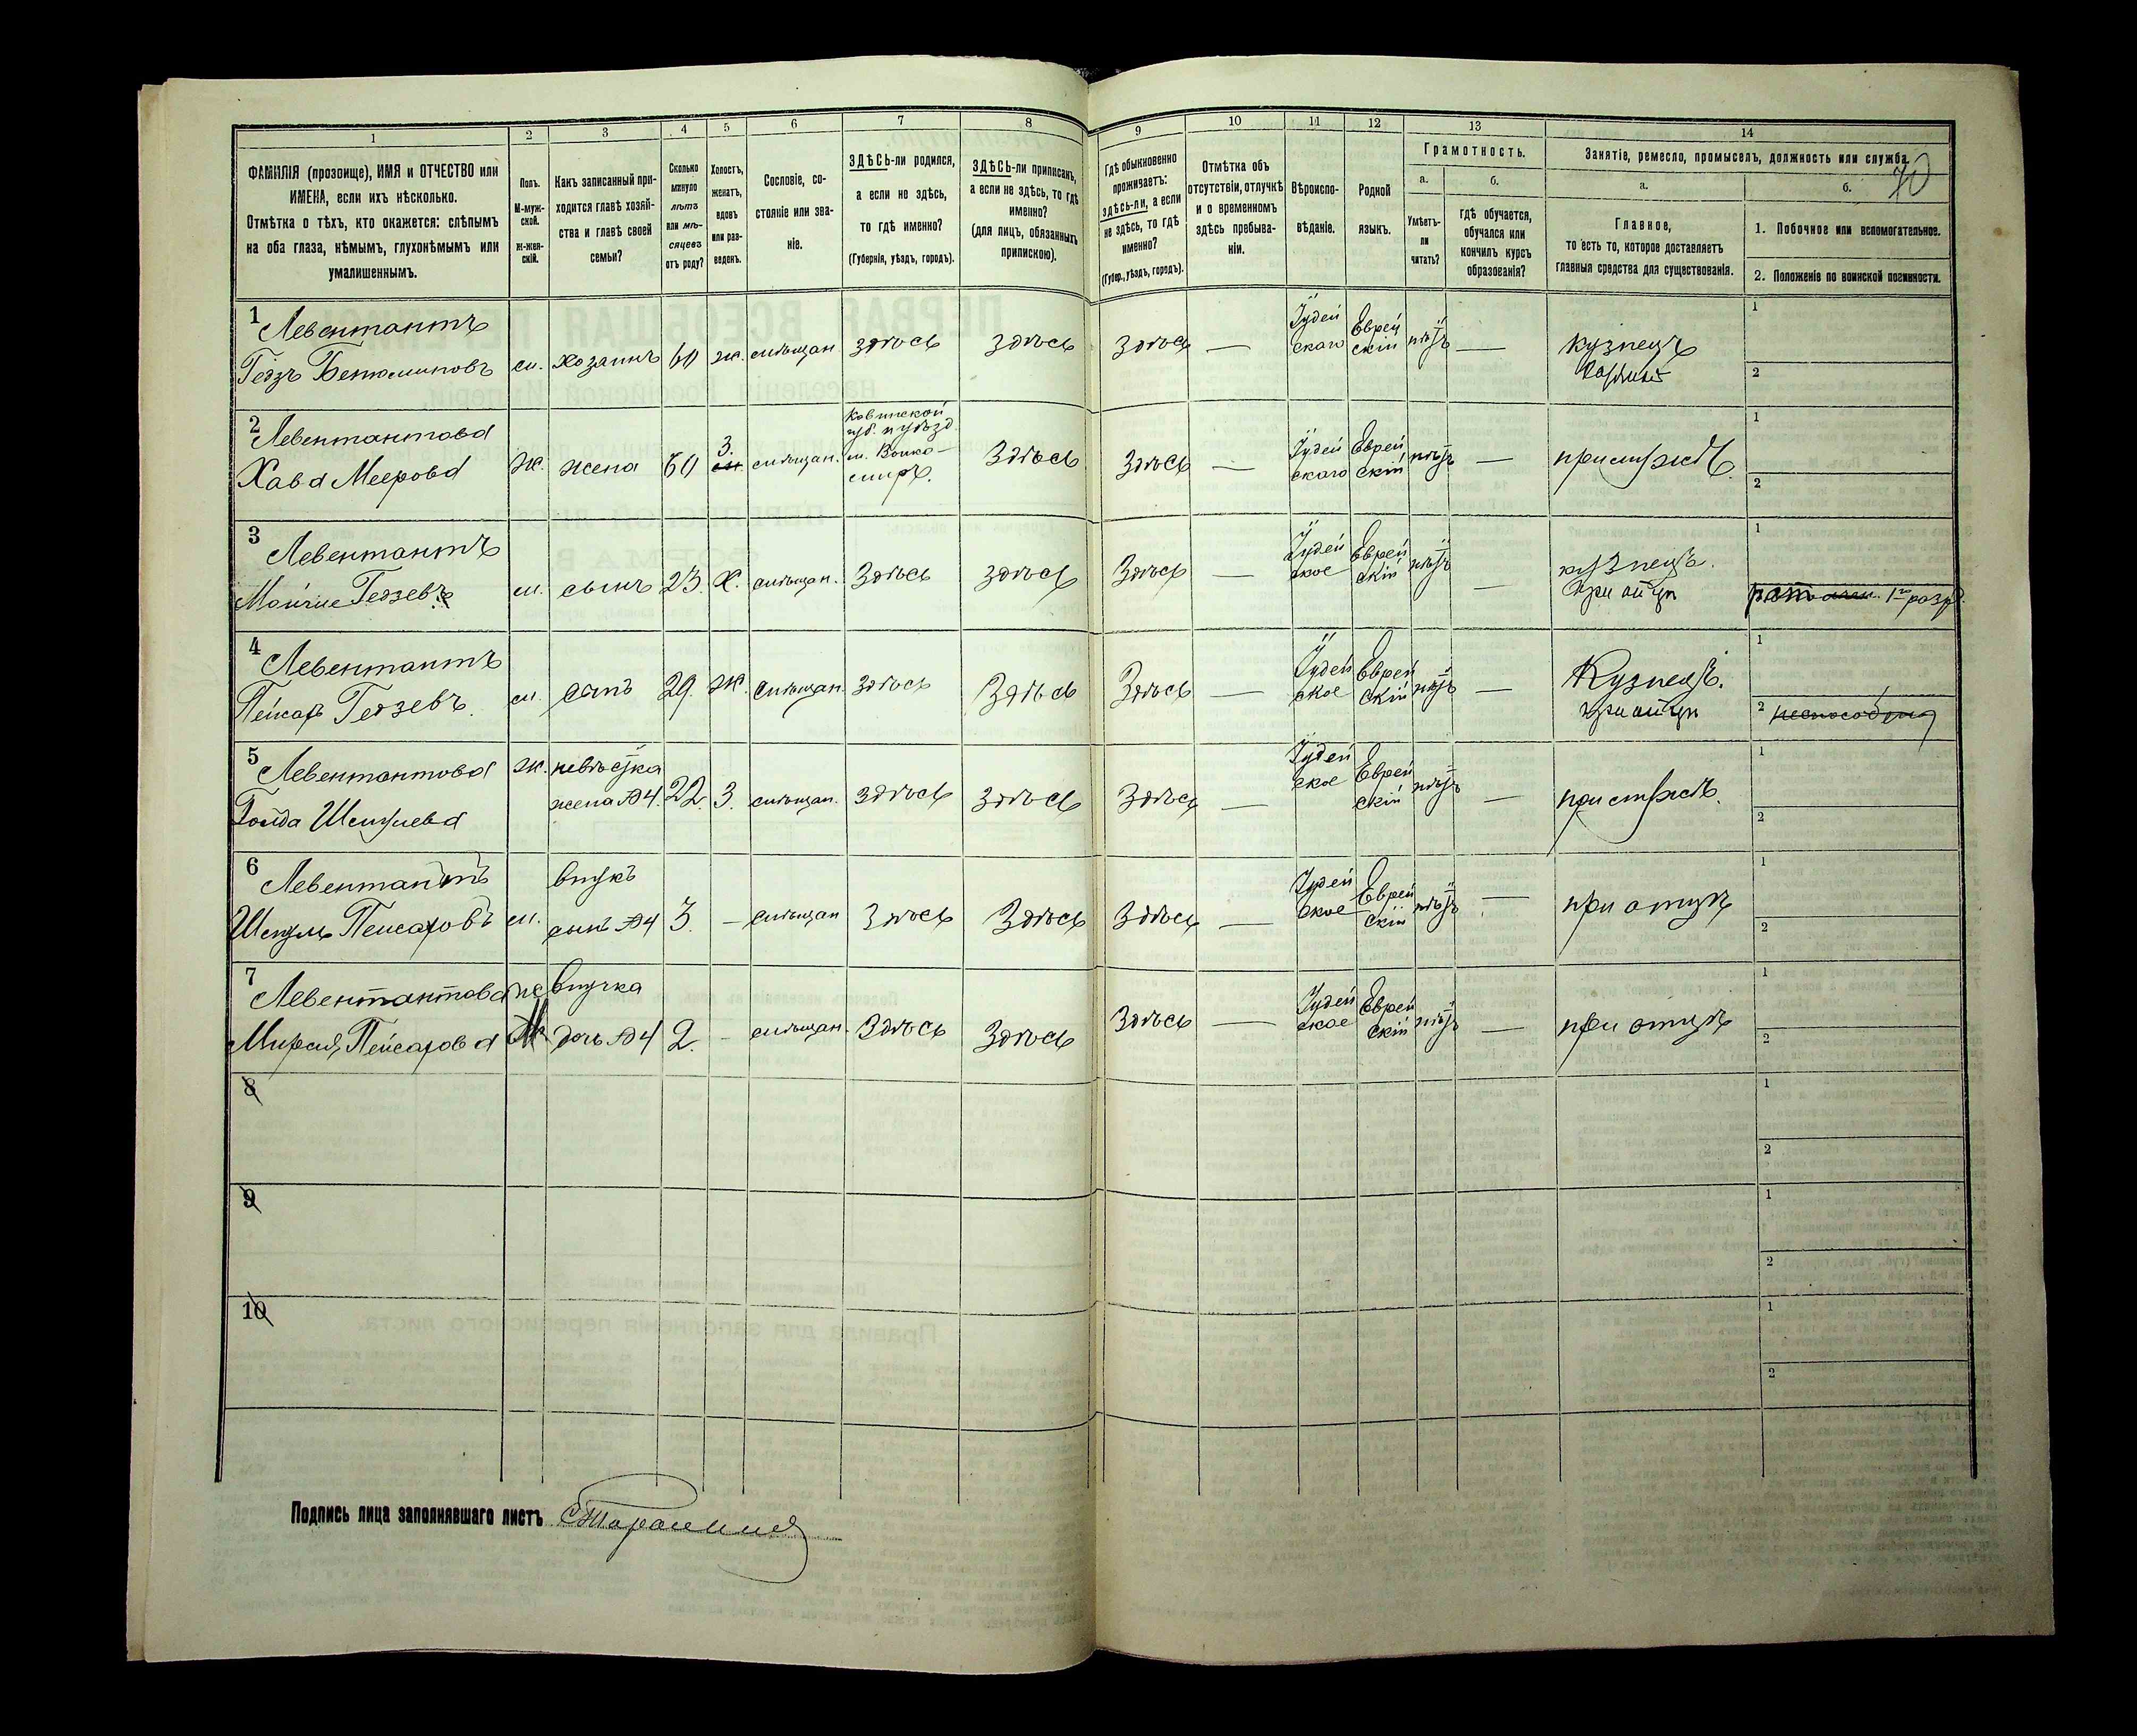 1 2 3 4 5 6 7 8 9 10 11 12 13 14
ФАМИЛІЯ (прозвище), ИМЯ и ОТЧЕСТВО или
ИМЕНА, если ихъ нѣсколько.
Отмѣтка о тѣхъ, кто окажется: слѣпымъ
на оба глаза, нѣмымъ, глухонѣмымъ или
умалишеннымъ.
Полъ.
М-муж-
ской.
Ж-жен-
скій.
Какъ записанный при-
ходится главѣ хозяй-
ства и главѣ своей
семьи?
Сколько
минуло
лѣтъ
или мѣ-
сяцевъ
отъ роду?
Холостъ,
женатъ,
вдовъ
или раз-
веденъ.
Сословіе, со-
стояніе или зва-
ніе.
ЗДѢСЬ-ли родился,
а если не здѣсь,
то гдѣ именно?
(Губернія, уѣздъ, городъ).
ЗДѢСЬ-ли приписанъ,
а если не здѣсь, то гдѣ
именно?
(для лицъ, обязанныхъ
припискою).
Гдѣ обыкновенно
проживаетъ:
здѣсь-ли, а если
не здѣсь, то гдѣ
именно?
(Губер., уѣздъ, городъ).
Отмѣтка объ
отсутствіи, отлучкѣ
и о временномъ
здѣсь пребыва-
ніи.
Вѣроиспо-
вѣданіе.
Родной
языкъ.
Грамотность.
а.
Умѣетъ-
ли
читать?
б.
Гдѣ обучается,
обучался или
кончилъ курсъ
образованія?
Занятіе, ремесло, промыселъ, должность или служба.
70
а.
Главное,
то есть то, которое доставляетъ
главныя средства для существованія.
б.
1. Побочное или вспомогательное.
2. Положеніе по воинской повинности.
1 Левентантъ
Гедзъ Бенюминовъ м. хозаинъ 60 ж. мѣщан здѣсь здѣсь здѣсь — Іудей
скаго Еврей
скій нѣтъ — кузнецъ
1
2
2 Левентантова
Хава Меерова ж. жена 60 З. мѣщан. Ковенской
губ. и уѣзд.
м. Вилко-
миръ. Здѣсь Здѣсь — Іудей
скаго Еврей
скій нѣтъ — при мужѣ.
1
2
3 Левентантъ
Гедзевъ м. сынъ 23. Х. мѣщан. Здѣсь здѣсь Здѣсь — Іудей
ское Еврей
скій нѣтъ — кузнецъ.
при отцѣ
1
1го разр.
4 Левентантъ
Пейсахъ Гедзевъ. м. сынъ 29. Ж. мѣщан. здѣсь Здѣсь Здѣсь — Іудей
ское Еврей
скій нѣтъ — Кузнецъ.
при отцѣ
1
2
5 Левентантова ж. невѣстка
жена №4. 22. З. мѣщан. здѣсь здѣсь Здѣсь — Іудей
ское Еврей
скій нѣтъ — при мужѣ.
1
2
6 Левентантъ
Пейсаховъ м. внукъ
сынъ №4 3. — мѣщан Здѣсь Здѣсь Здѣсь — Іудей
ское Еврей
скій нѣтъ — при отцѣ
1
2
7 Левентантова
Пейсахова внучка
дочь №4 2. - мѣщан. Здѣсь Здѣсь Здѣсь — Іудей
ское Еврей
скій нѣтъ — при отцѣ
1
2
8
1
2
9
1
2
10
1
2
Подпись лица заполнявшаго листъ